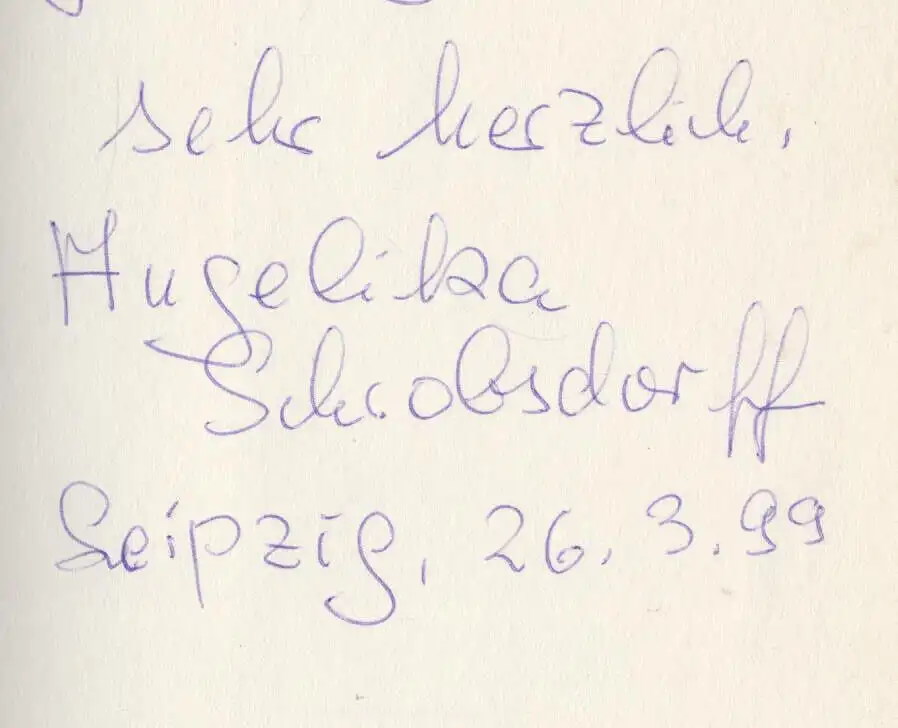 sehr herzlich,
Angelika
Schrobsdorff
Leipzig, 26.3.99